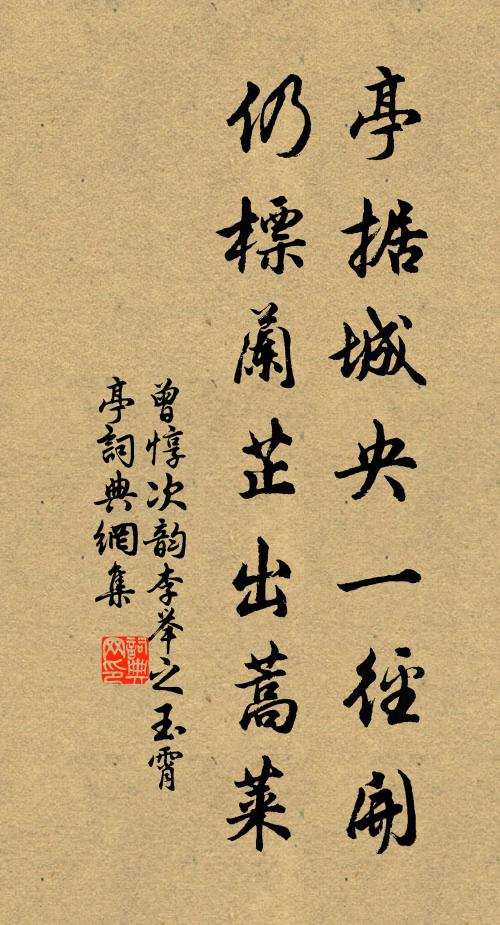 亭据城央一徑開
仍標蘭芷出蒿萊
曾惇次韵李举之玉霄
亭詞典網集
詞典网印